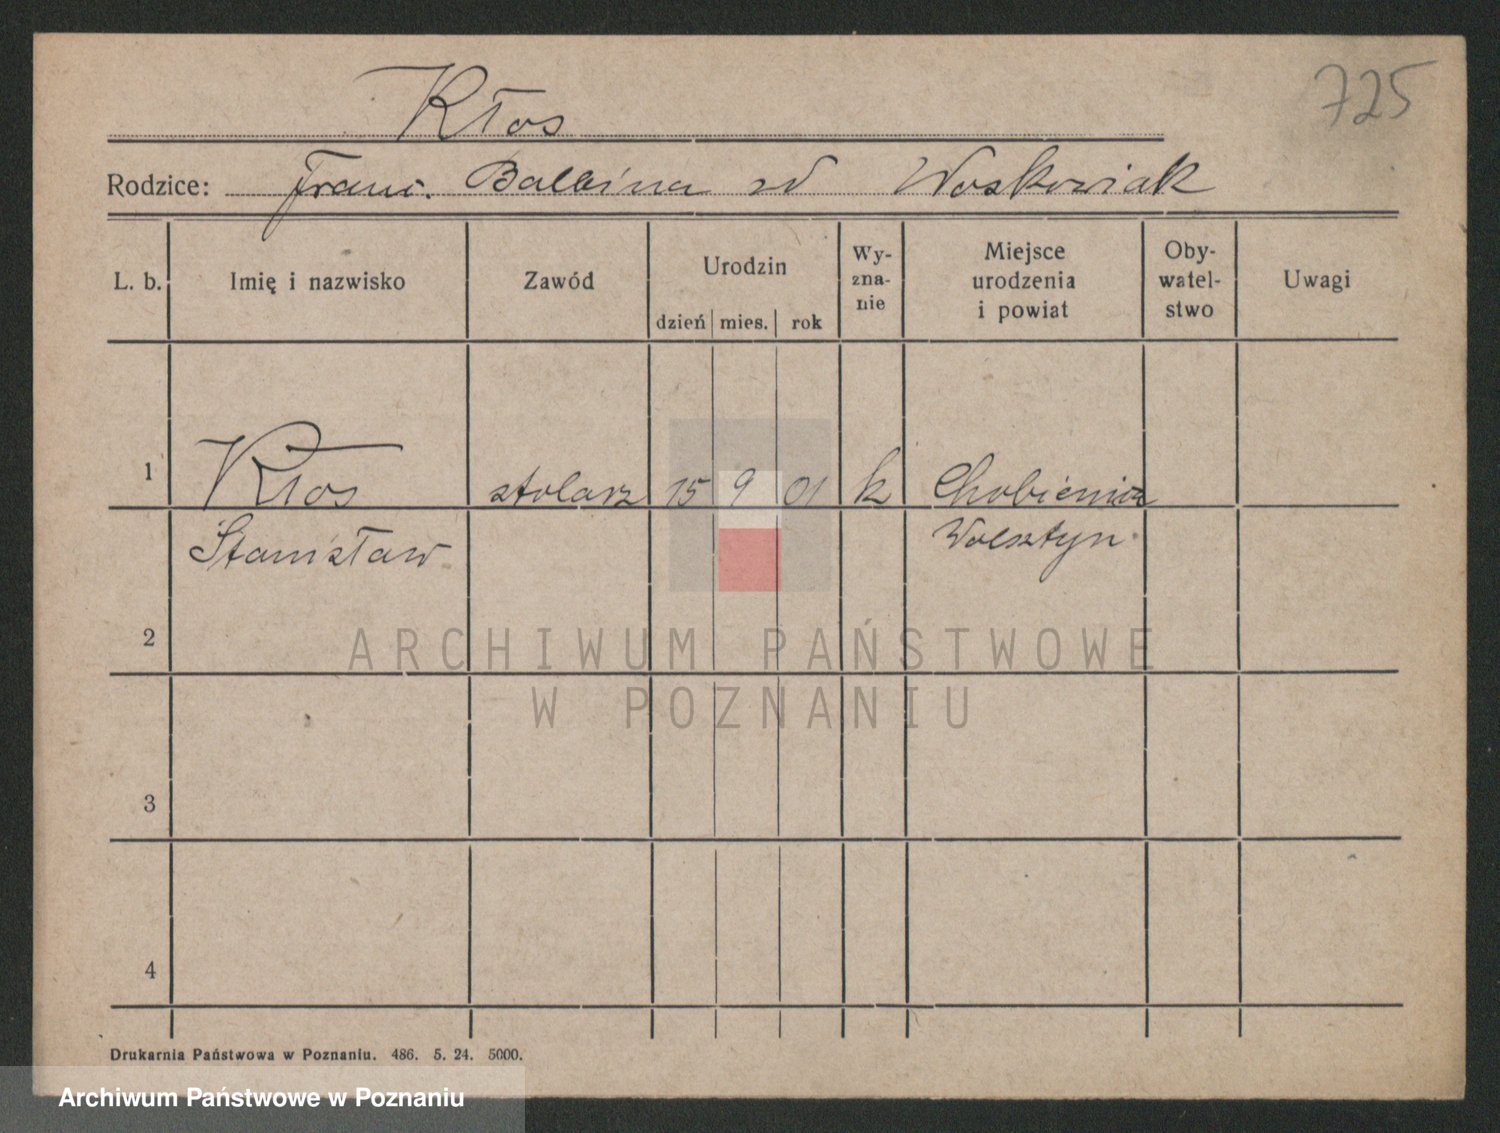 725
Kłos
Rodzice: Franc. Balbina zd Woskowiak
L. b. Imię i nazwisko Zawód Urodzin dzień mies. rok Wy-zna-nie Miejsce urodzenia i powiat Oby-watel-stwo Uwagi
1 Kłos stolarz 15 9 01 k Chobienice
Stanisław Wolsztyn
2
ARCHIWUM PAŃSTWOWE
W POZNANIU
3
4
Drukarnia Państwowa w Poznaniu. 486. 5. 24. 5000.
Archiwum Państwowe w Poznaniu